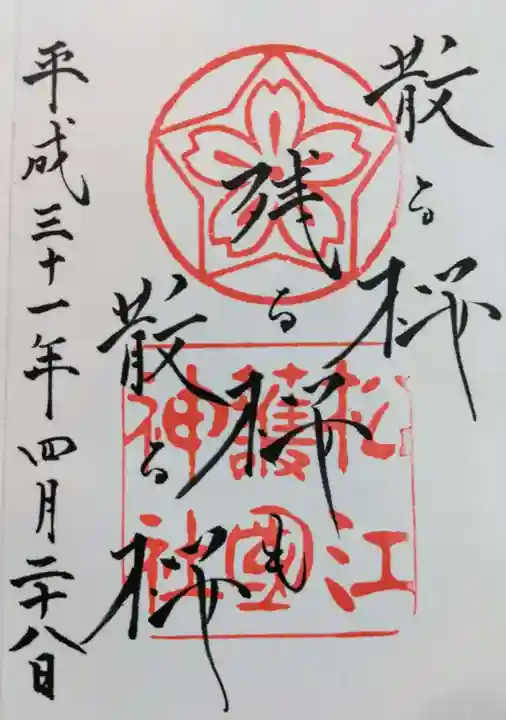 散る桜
残る桜も
散る桜
平成三十一年四月二十八日
松江
護國
神社